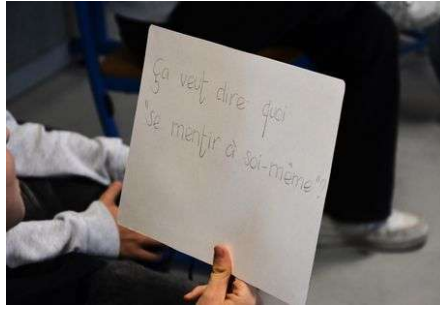 Ça veut dire quoi
"se mentir à soi-même"?